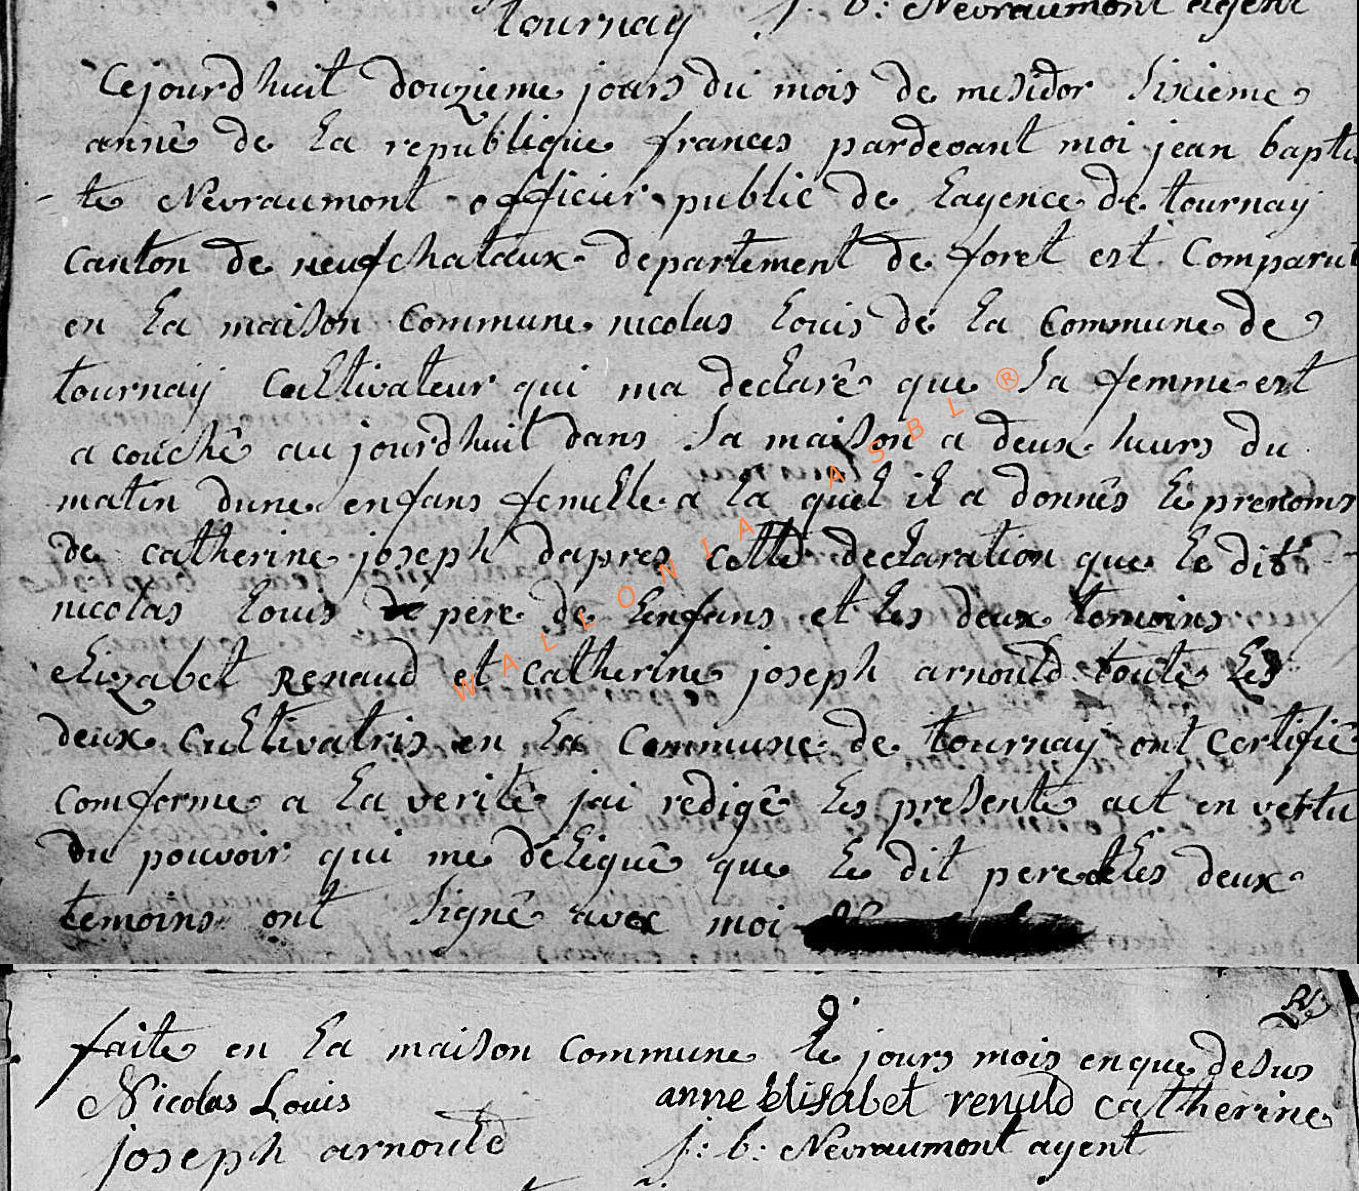 tournay j: b: Nevraumont agent
Cejourdhuit douzieme jours du mois de mesidor sixieme
anné de la republique frances pardevant moi jean baptis
- te Nevraumont officier public de lagence de tournay
canton de neufchataux departement de foret est Comparut
en la maison Commune nicolas Louis de la Commune de
tournaij Cultivateur qui ma declaré que sa femme est
a couché au jourdhuit dans sa maison a deux heurs du
matin dune enfans femelle a la quel il a donnés le prenoms
de catherine joseph dapres cette declaration que le dit
nicolas Louis pere de lenfans et les deux temoins
elizabet Renaud et catherine joseph arnould toute les
deux cultivatris en la Commune de tournay ont certifié
comforme a la verité jai redigé les presente act en vertu
du pouvoir qui me deligué que le dit pere et les deux
temoins ont signé avec moi
faite en la maison Commune le jours mois enque desus
Nicolas Louis anne Elisabet renuld catherine
joseph arnould j: b: Nevraumont agent
WALLONIA ASBL ®